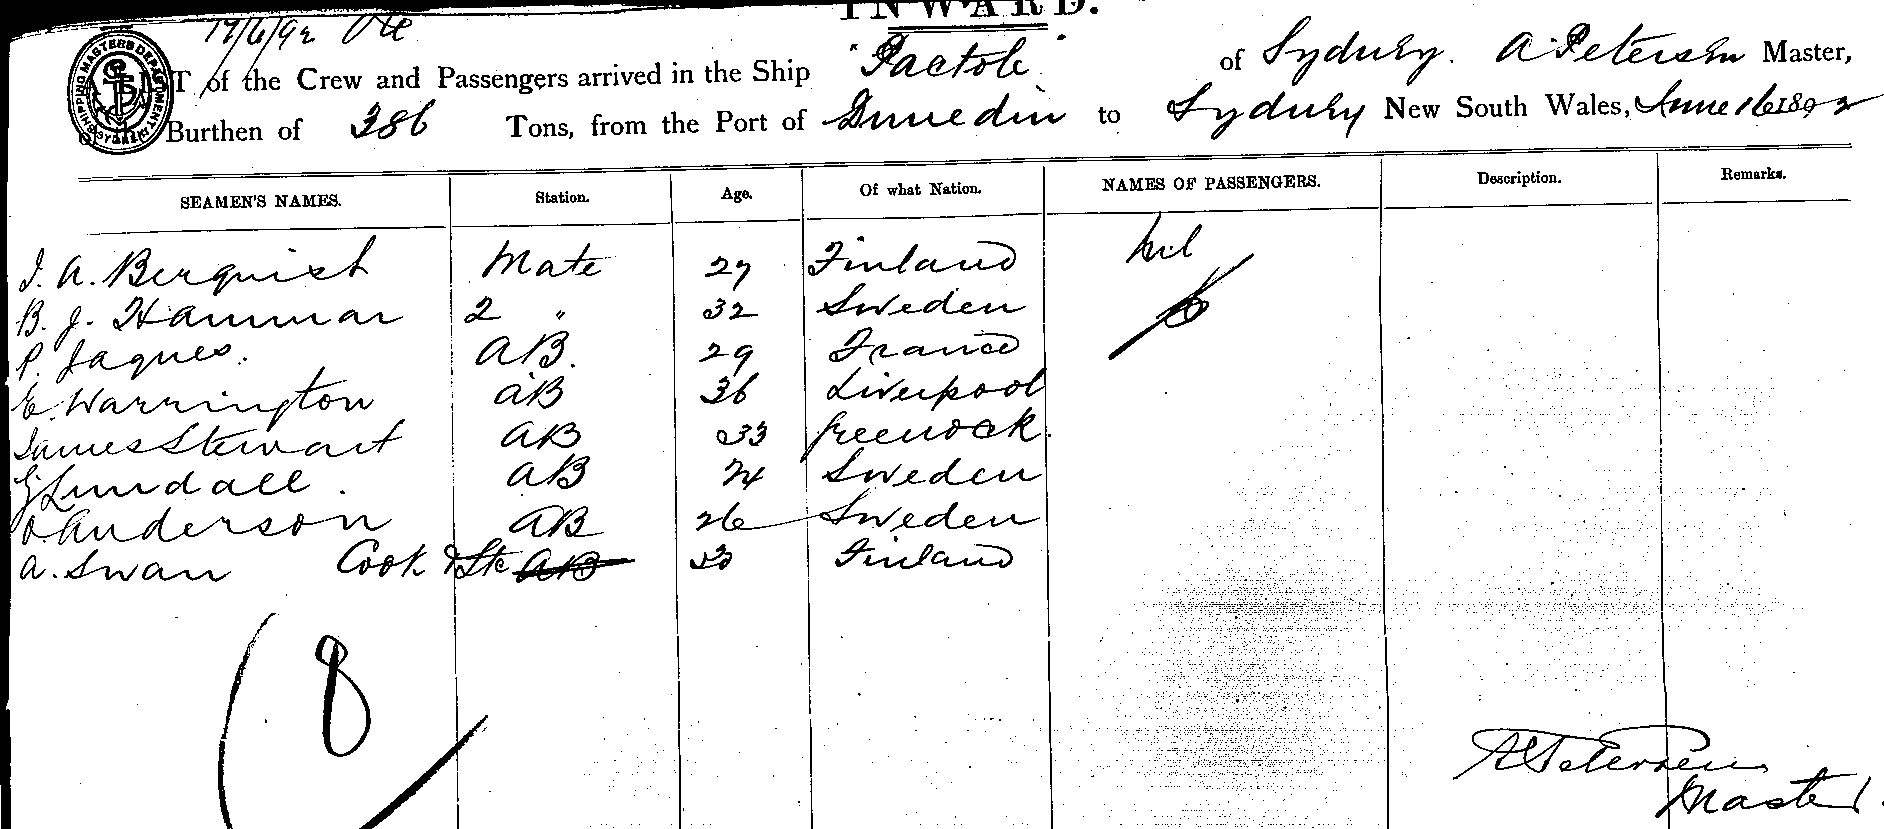 INWARD.
17/6/92
of the Crew and Passengers arrived in the Ship "Pactole" of Sydney. A Petersen Master,
Burthen of 386 Tons, from the Port of Dunedin to Sydney New South Wales, June 16 1892
SEAMEN'S NAMES. Station. Age. Of what Nation. NAMES OF PASSENGERS. Description. Remarks.
J. A. Berquist Mate 27 Finland Nil
B. J. Hammar 2 " 32 Sweden
P. Jaques. AB. 29 France
E. Warrington AB 36 Liverpool
James Stewart AB 33 Greenock.
G Lundall. AB 24 Sweden
O. Anderson AB 26 Sweden
A. Swan Cook & Std AB 30 Finland
8
A Petersen
Master